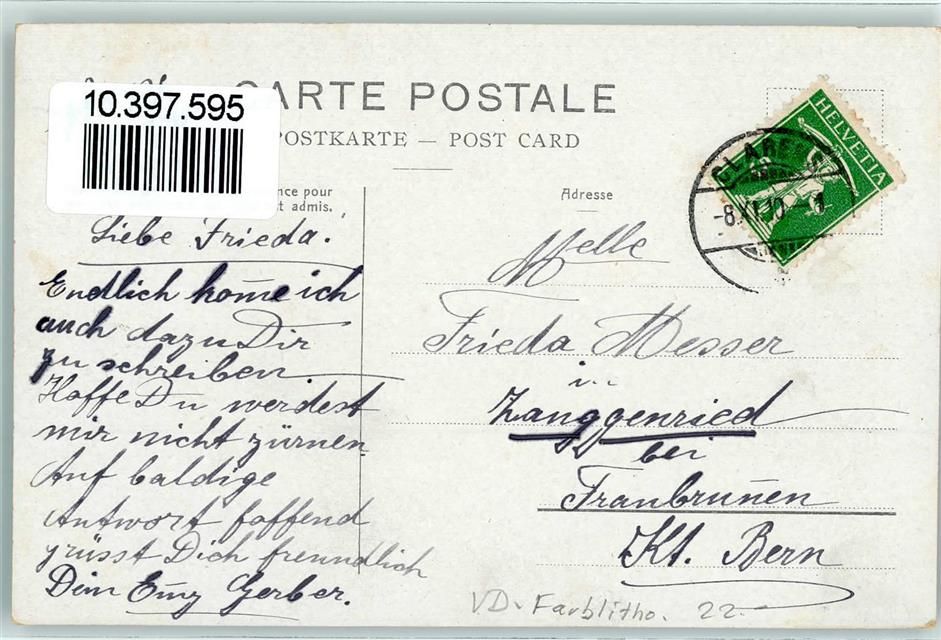 10.397.595
CARTE POSTALE
POSTKARTE — POST CARD
nce pour
t admis.
Adresse
HELVETIA
CLARENS
-8.XI.10
Liebe Frieda.
Endlich kom̄e ich
auch dazu Dir
zu schreiben
Hoffe Du werdest
mir nicht zürnen
Auf baldige
Antwort hoffend
grüsst Dich freundlich
Dein Emy Gerber.
Melle
Frieda Messer
in
Zanggenried
bei
Fraubrun̄en
Kt. Bern
VD - Farblitho. 22.-